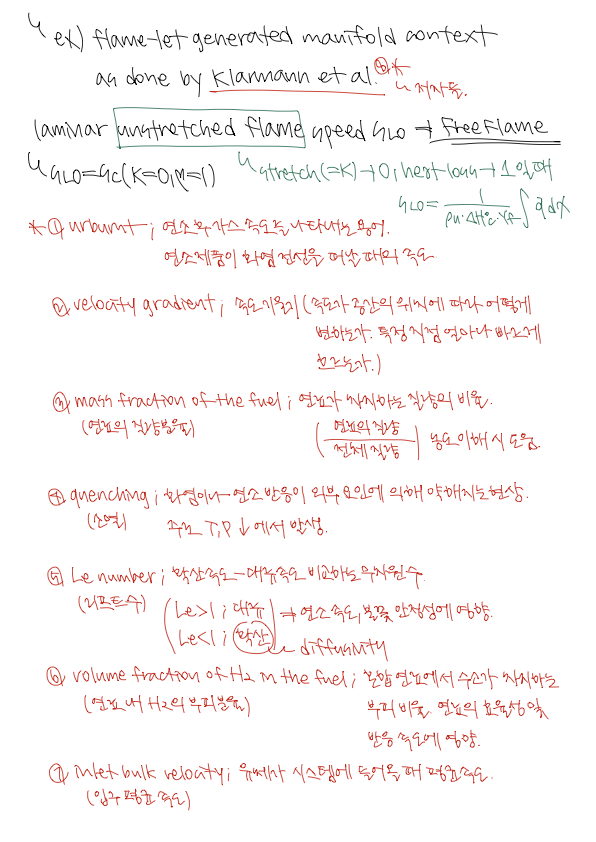 ex) flame-let generated manifold context
as done by Klarmann et al. ④*
↳ 저자들.
laminar unstretched flame speed SL0 → FreeFlame
↳ SL0 = Sc(K=0, η=1)
↳ stretch(=K)→0, heat loss→1일 때
SL0 = 1 / ρu·ΔH°c·Yf ∫ q dx
* ① unburnt ; 연소 후 가스 속도를 나타내는 용어.
연소제품이 화염전선을 떠날 때의 속도
② velocity gradient ; 속도기울기 (속도가 공간의 위치에 따라 어떻게
변하는가. 특정 지점 얼마나 빠르게
흐르는가.)
③ mass fraction of the fuel ; 연료가 차지하는 질량의 비율.
(연료의 질량분율)
(연료의 질량 / 전체 질량) 농도 이해 시 도움.
④ quenching ; 화염이나 연소 반응이 외부 요인에 의해 약해지는 현상.
(소염)
주로 T, P ↓에서 발생.
⑤ Le number ; 확산속도-대류속도 비교하는 무차원수.
(리프트수)
(Le>1 ; 대류
Le<1 ; 확산) → 연소 속도, 불꽃 안정성에 영향.
↳ diffusivity
⑥ volume fraction of H2 in the fuel ; 혼합 연료에서 수소가 차지하는
(연료 내 H2의 부피분율)
부피 비율. 연료의 효율성 및
반응 속도에 영향.
⑦ inlet bulk velocity ; 유체가 시스템에 들어올 때 평균속도.
(입구 평균 속도)